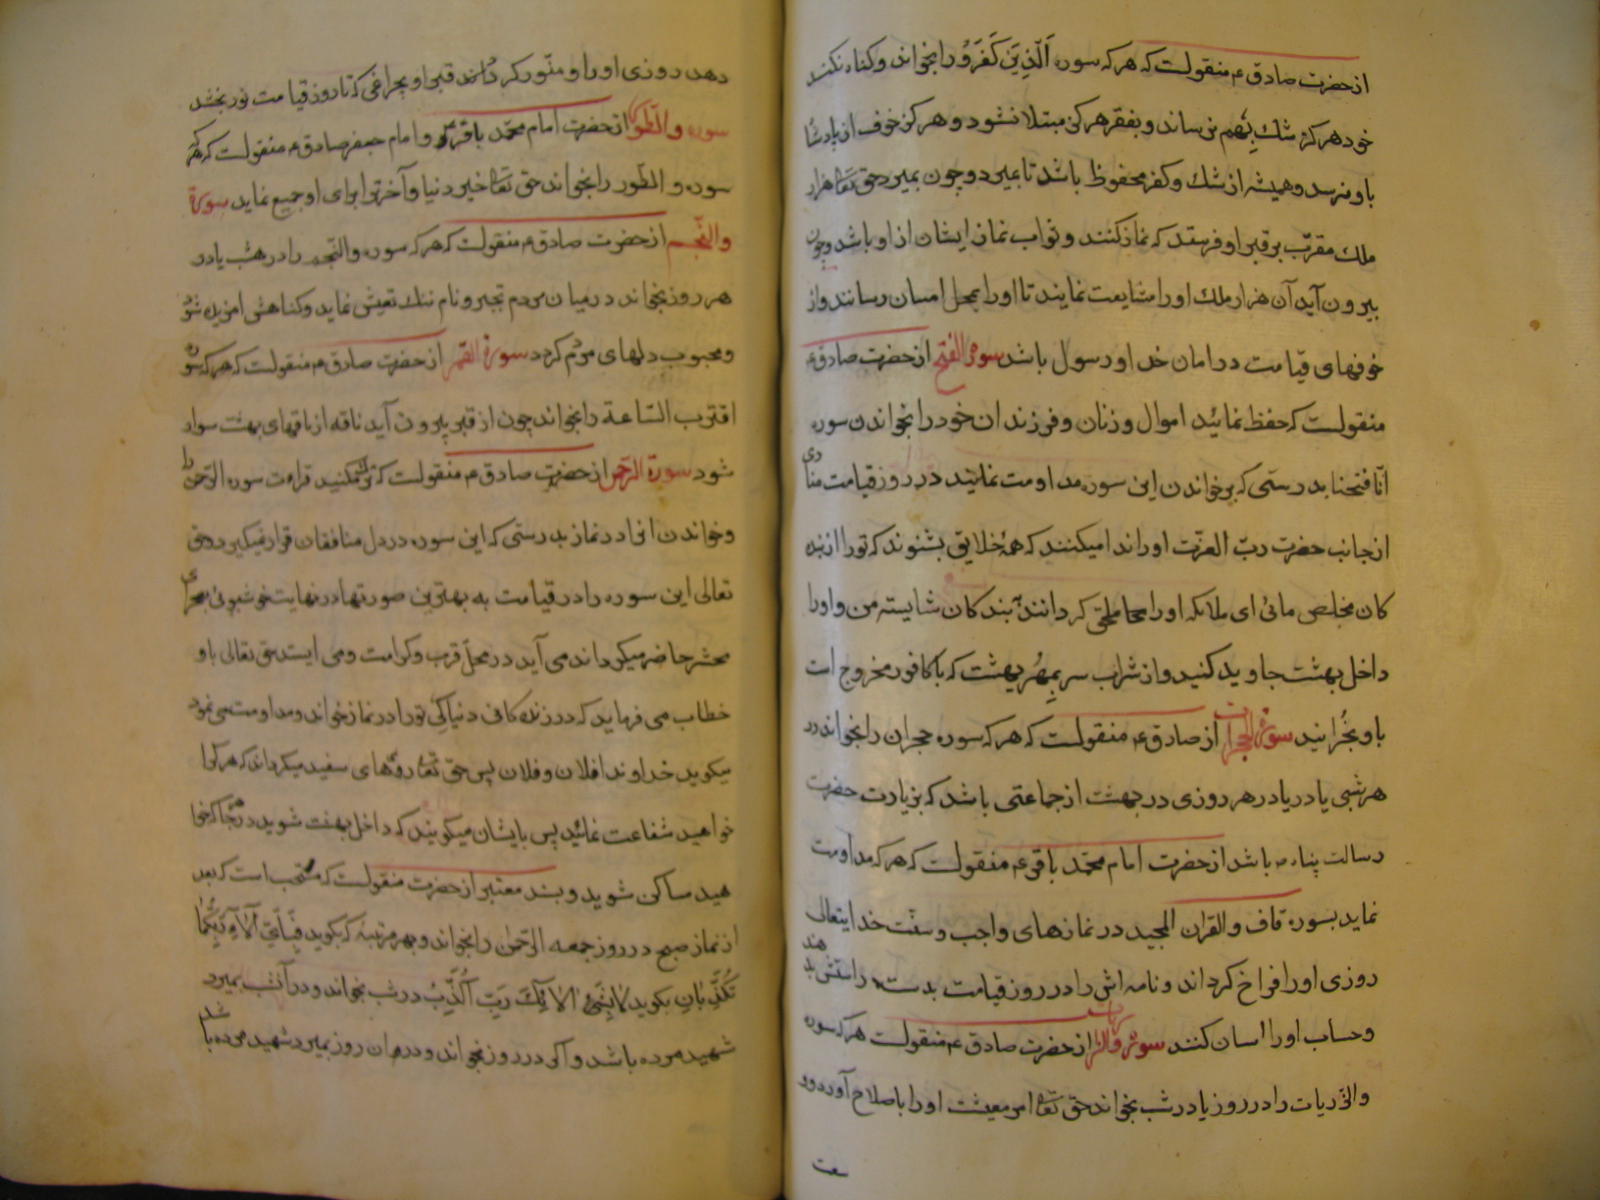 از حضرت صادق ع منقولست که هر که سوره الّذین کَفَرُوا را بخواند و کناه نکند
خود هرکز شك بهم نرساند و بفقر هرکز مبتلا نشود و هرکز خوف از پادشا
باو نرسد و همیشه از شك و کفر محفوظ باشد تا بمیرد و چون بمیرد حق تعا هزار
ملك مقرّب بر قبر او فرستد که نماز کنند و ثواب نماز ایشان از او باشد و چون
بیرون آید آن هزار ملك او را مشایعت نمایند تا او را بمحل امسان رسانند و از
خوفهای قیامت در امان خدا و رسول باشد سوره الفتح از حضرت صادق ع
منقولست که حفظ نمائید اموال و زنان و فرزندان خود را بخواندن سوره
انّا فتحنا بدرستی که بر خواندن این سوره مداومت نمائید در روز قیامت منادی
از جانب حضرت ربّ العزّت او را ندا میکنند که همهٔ خلایق بشنوند که تو از بنده
کان مخلص مائی ای ملائکه او را ملحق کردانند به بند کان شایسته من و او را
داخل بهشت جاوید کنید و از شراب سر بمهر بهشت که با کافور مخروج است
باو بخُرانید سورة الحجرات از صادق ع منقولست که هر که سوره حجران را بخواند در
هر شبی یا در هر روزی در بهشت از جماعتی باشد که بزیارت حضرت
رسالت پناه باشد از حضرت امام محمّد باقر ع منقولست که هر که مداومت
نماید بسوره قاف و القران المجید در نمازهای واجب و سنّت خدایتعالی
روزی او را فراخ کرداند و نامه اش را در روز قیامت بدست راستش بدهند
و حساب او را اسان کنند سوره والذاریات از حضرت صادق ع منقولست هر که سوره
والذّاریات را در روز یا در شب بخواند حق تعا امر معیشت او را باصلاح آورد و و
سعت
دهد روزی او را و منّور کرداند قبر او بچراغی که تا روز قیامت نور بخشد
سوره والطّور از حضرت امام محمّد باقر ع و امام جعفر صادق ع منقولست که هر که
سوره و الطّور را بخواند حق تعا خیر دنیا و آخرت را برای او جمیع نماید سورة
والنّجم از حضرت صادق ع منقولست که هر که سوره والنّجم را در هر شب یا در
هر روز بخواند در میان مردم بخیر و نام نیك تعیش نماید و کناهش امرزیده شود
و محبوب دلهای مردم کردد سورة القمر از حضرت صادق ع منقولست که هر که سوره
اقتربت السّاعة را بخواند چون از قبر بیرون آید ناقه از ناقهای بهشت سوار
شود سورة الرّحمن از حضرت صادق ع منقولست که ترك مکنید قراءت سوره الرّحمن را
و خواندن انرا در نماز بدرستی که این سوره در دل منافقان قرار نمیکیرد و حق
تعالی این سوره را در قیامت به بهترین صورتها در نهایت خوشبوئی بصحرای
محشر حاضر میکرداند می آید در محلّ قرب و کرامت و می ایستد حق تعالی باو
خطاب می فرماید که در زنده کافی دنیا کی تو را در نماز خواند و مداومت می نمود
میکوید خداوندا فلان و فلان پس حق تعا روهای سفید میکرداند که هر کرا
خواهید شفاعت نمائید پس بایشان میکویند که داخل بهشت شوید در هرجا که خوا
هید ساکن شوید و بسند معتبر از حضرت منقولست که مستحب است که بعد
از نماز صبح در روز جمعه الرّحمن را بخواند و بهر مرتبه که بکوید فَبِاَیِّ آلَاءِ رَبِّکُمَا
تُکَذِّبَانِ بکوید لَا بِشَیْءٍ مِنْ اٰلَائِكَ رَبِّ اُکَذِّبُ در شب بخواند و در آنشب بمیرد
شهید مرده باشد و اکر در روز بخواند و در همان روز بمیرد شهید مرده باشد